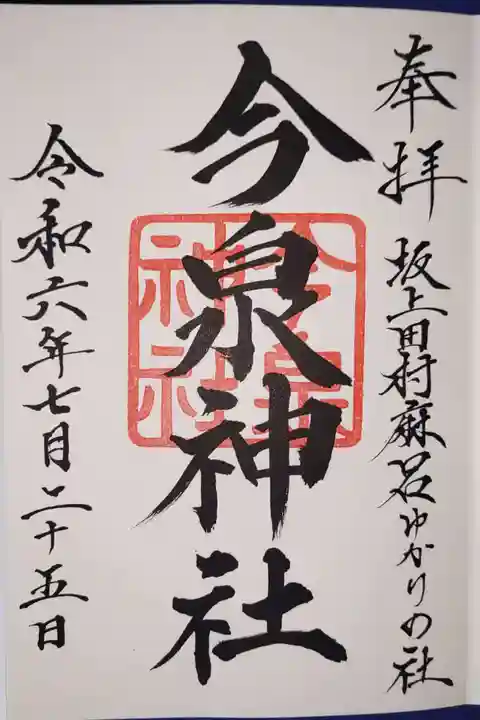 奉拝 坂上田村麻呂ゆかりの社
今泉神社
今泉神社
令和六年七月二十五日